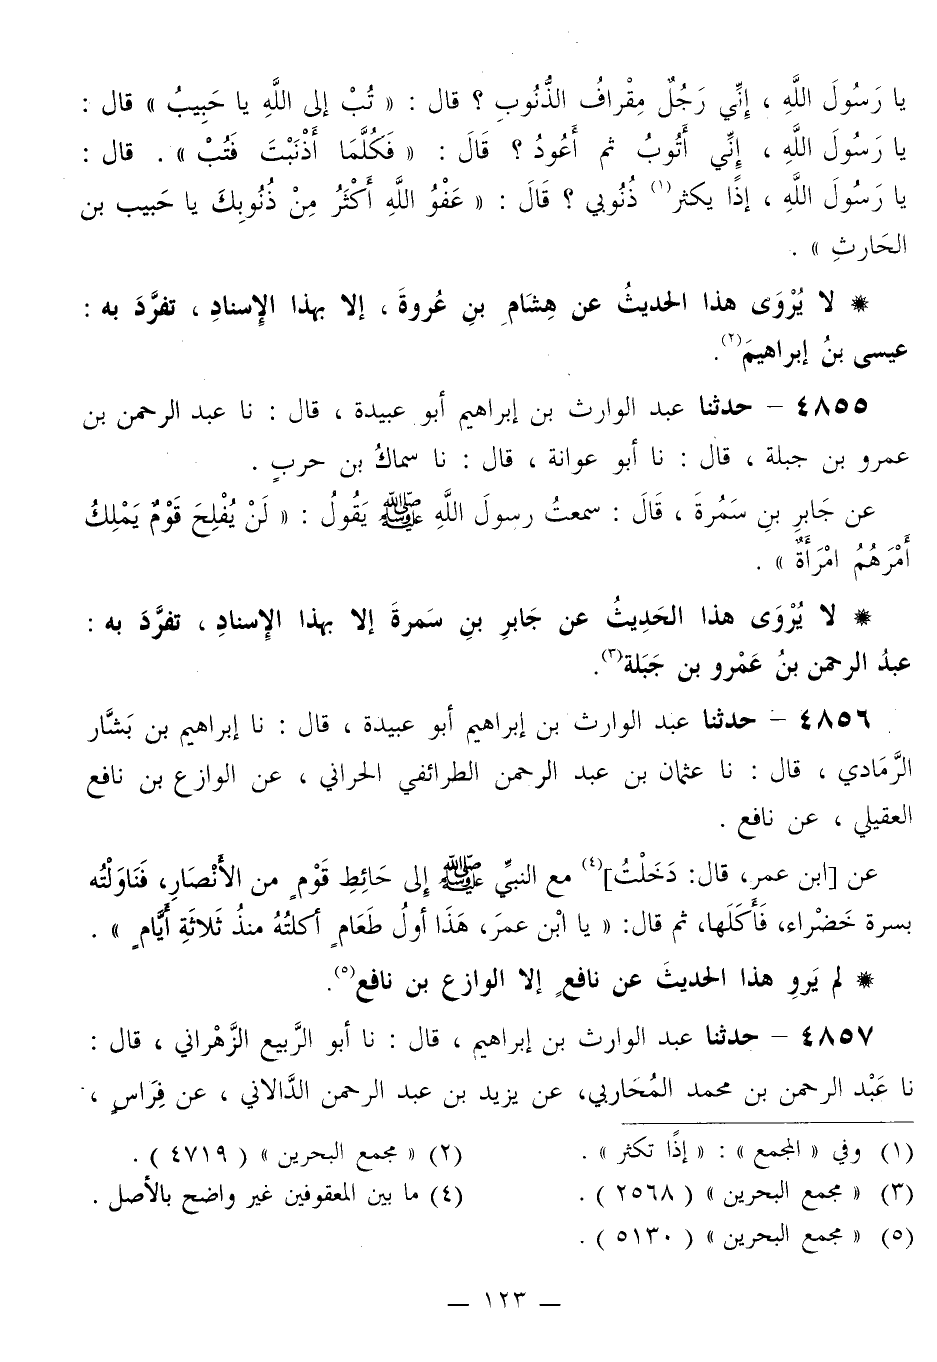 يا رَسُولَ اللَّهِ ، إِنِّي رَجُلٌ مِقْرافُ الذُّنُوبِ ؟ قال : « تُبْ إلى اللَّهِ يا حَبِيبُ » قال :
يا رَسُولَ اللَّهِ ، إِنِّي أَتُوبُ ثم أَعُودُ ؟ قَالَ : « فَكُلَّمَا أَذْنَبْتَ فَتُبْ » . قال :
يا رَسُولَ اللَّهِ ، إذًا يكثر(١) ذُنُوبي ؟ قَالَ : « عَفْوُ اللَّهِ أَكْثَرُ مِنْ ذُنُوبِكَ يا حَبيب بن
الحَارثِ » .
* لا يُرْوَى هذا الحديثُ عن هِشَامِ بنِ عُروةَ ، إلا بهذا الإِسنادِ ، تفرَّدَ به :
عيسى بنُ إبراهيمَ(٢).
٤٨٥٥ – حدثنا عبد الوارث بن إبراهيم أبو عبيدة ، قال : نا عبد الرحمن بن
عمرو بن جبلة ، قال : نا أبو عوانة ، قال : نا سماكُ بن حربٍ .
عن جَابرِ بنِ سَمُرةَ ، قَالَ : سمعتُ رسولَ اللَّهِ ﷺ يَقُولُ : « لَنْ يُفْلِحَ قَوْمٌ يَمْلِكُ
أَمْرَهُمُ امْرَأَةٌ » .
* لا يُرْوَى هذا الحَدِيثُ عن جَابرِ بنِ سَمرةَ إلا بهذا الإِسنادِ ، تفرَّدَ به :
عبدُ الرحمن بنُ عَمْرو بن جَبَلة(٣).
٤٨٥٦ – حدثنا عبد الوارث بن إبراهيم أبو عبيدة ، قال : نا إبراهيم بن بَشَّار
الرَّمَادي ، قال : نا عثمان بن عبد الرحمن الطرائفي الحراني ، عن الوازع بن نافع
العقيلي ، عن نافع .
عن [ابن عمر، قال: دَخَلْتُ](٤) مع النبيِّ ﷺ إلى حَائِطِ قَوْمٍ من الأَنْصَارِ، فَنَاوَلْتُه
بسرة خَضْراء، فَأَكَلَها، ثم قال: « يا ابْن عمرَ، هَذَا أولُ طَعَامٍ أكلتُهُ منذُ ثَلاثَةِ أَيَّامٍ » .
* لم يَروِ هذا الحديثَ عن نافعٍ إلا الوازع بن نافع(٥).
٤٨٥٧ – حدثنا عبد الوارث بن إبراهيم ، قال : نا أبو الرَّبيع الزَّهْراني ، قال :
نا عَبْد الرحمن بن محمد المُحَاربي، عن يزيد بن عبد الرحمن الدَّالاني ، عن فِرَاسٍ ،
(١) وفي « المجمع » : « إذًا تكثر » .
(٢) « مجمع البحرين » ( ٤٧١٩ ) .
(٣) « مجمع البحرين » ( ٢٥٦٨ ) .
(٤) ما بين المعقوفين غير واضح بالأصل .
(٥) « مجمع البحرين » ( ٥١٣٠ ) .
— ١٢٣ —